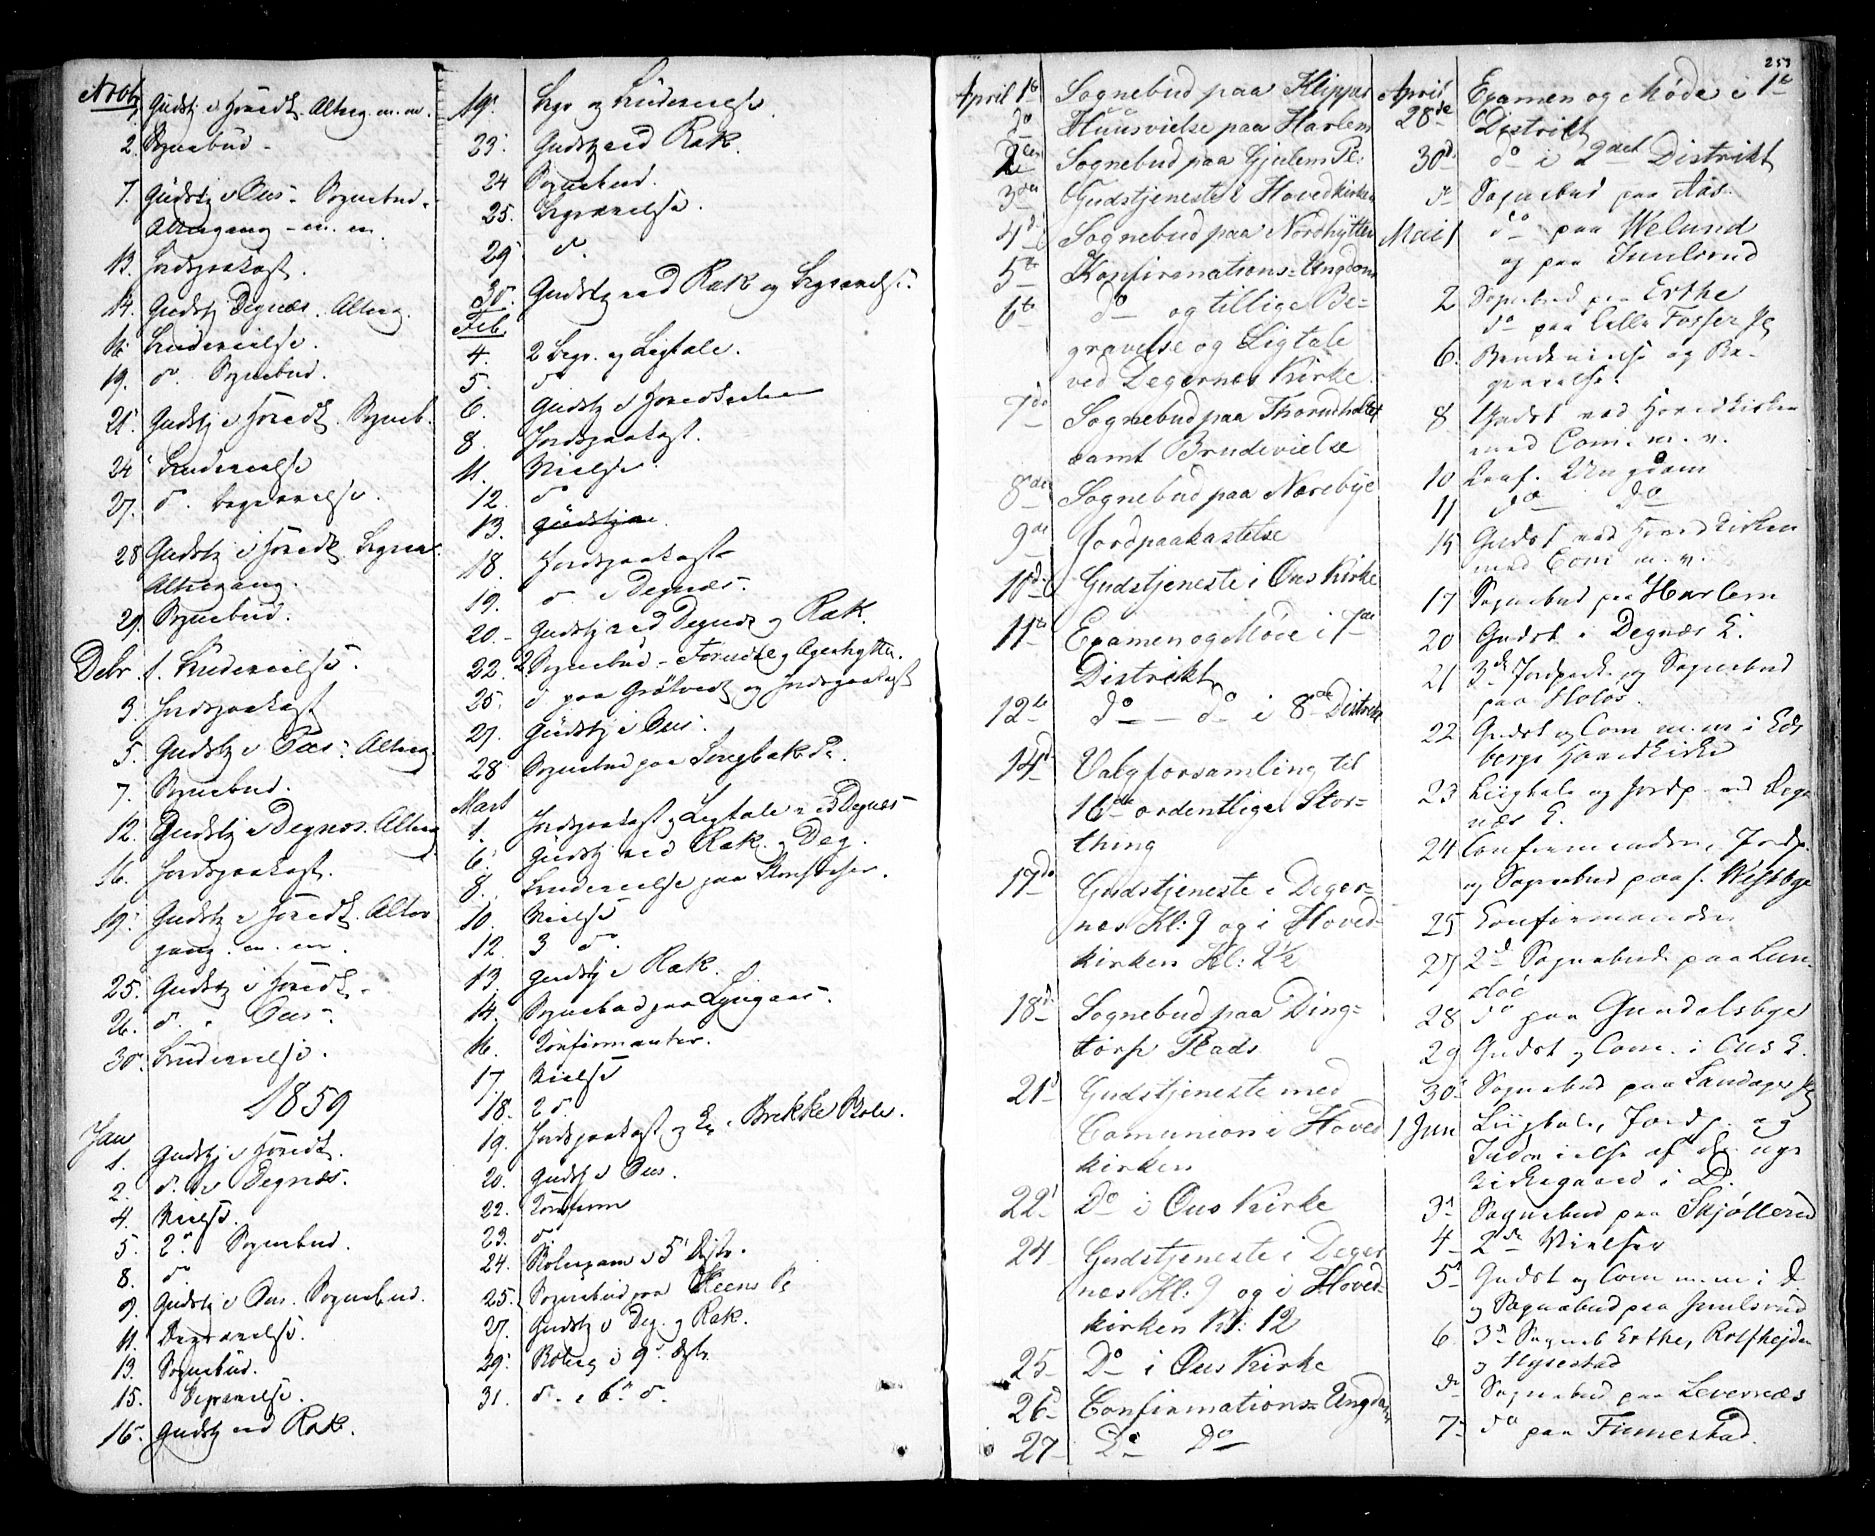 Novb.
1. Gudstj i Hovedk. Alterg. m. m.
2. Sognebud -
7. Gudstj i Øus - Sognebud -
Altergang - m. m.
13. Jordspaakast.
14. Gudstj Degnæs. Alterg.
16. Brudevielse.
19. do. Sognebud.
21. Gudstj i Hovedk. Sogneb.
24. Brudevielse
27. do. Begravelse.
28 Gudstj i Hovedk.
Altergang.
29. Sognebud.
Debr 1. Brudevielse.
3. Jordspaakast
5. Gudstj i Øus. Alterg.
7. Sognebud.
12. Gudstj i Degnæs. Alterg
16. Jordspaakast.
19. Gudstj i Hovedk. Alter
gang. m. m.
25. Gudstj i Hovedk.
26. do. i Øus.
30. Brudevielse.
1859
Jan
1. Gudstj i Hovedk.
2. do. i Degnæs.
4. Vielse.
5. 2 Sognebud.
8. do
9. Gudstj i Øus. Sognebud.
11. Begravelse.
13. Sognebud.
15. Begravelse.
16. Gudstj ved Rak.
19. Begr og Brudevielse.
23. Gudstj ved Rak.
24 Sognebud.
25. Begravelse.
29. do.
30. Gudstj ved Rak og Begravelse.
Feb
4. 2 Begr. og Ligtale.
5. do
6. Gudstj i Hovedkirken
8. Jordspaakast.
11. Vielse.
12. do
13. Gudstj
18. Jordspaakast
19. do i Degnæs.
20. Gudstj ved Degnæs og Rak.
22. 2 Sognebud - og Agerhytte.
25. do paa Grøtvedt og Jordspaakast
27. Gudstj i Øus.
28 Sognebud paa
Mart
1. Jordspaakast og Ligtale ved Degnæs
6. Gudstj ved Rak. og Deg.
8. Brudevielse paa
10. Vielse
12. 3 do.
13. Gudstj i Rak.
14. Sognebud paa Lyngaas.
16. Konfirmanter.
17 Vielse
18. 2 do.
19. Jordspaakast og Ex. i Brekke Skole.
20. Gudstj i Øus.
22. Konfirm
23. do
24. i 5t Distr.
25. Sognebud paa
27. Gudstj i Deg. og Rak.
29. i 9 Distr
31. do. i 6te do.
253
April 1te Sognebud paa Klippes
do Huusvielse paa Harlem
2den Sognebud paa Gjulem Pl.
3die Gudstjeneste i Hovedkirken
4de Sognebud paa Nordhytten
5te Konfirmations-Ungdom
6te do og tillige Be-
gravelse og Ligtale
ved Degernes Kirke.
7de Sognebud paa Thorudholtet
samt Brudevielse
8de Sognebud paa Næsebye
9de Jordpaakastelse
10de Gudstjeneste i Øus Kirke
11te Examen og Møde i 7de
Distrikt
12te do - do i 8de Distrikt
14de Valgforsamling til
16de ordentlige Stor-
thing
17de Gudstjeneste i Deger-
nes Kl: 9 og i Hoved-
kirken Kl: 2½
18de Sognebud paa Ding-
torp Plads
21de Gudstjeneste med
Comunion i Hoved
kirken
22de Do i Øus Kirke
24 Gudstjeneste i Deger
nes Kl: 9 og i Hoved-
kirken Kl: 12
25 Do i Øus Kirke
26de Confirmations-Ungdom
27 Do Do
April 28de Examen og Møde i 1te
Distrikt
30de do i 2det Distrikt
do Sognebud paa Aas.
Mai 1 do paa Welund
og paa Juulsrud
2 Sognebud paa Erthe
do paa Lille Fosser Pl
6. Brudevielse og Be-
gravelse.
8 Gudst ved Hovedkirken
med Com. m. v.
10 Conf. Ungdom
11 do do
15 Gudst ved Hovedkirken
med Com m. v.
17 Sognebud paa Harlem
20 Gudst i Degnæs K.
21 3de Jordpaak. og Sognebud
paa Holos.
22 Gudst og Com m. m i Eids
bergs Hovedkirke
23 Liigtale og Jordp. ved Deg
næs K.
24 Confirmander, Jordp.
og Sognebud paa s. Westbye
25 Confirmander
27 2de Sognebud paa Lun-
28 do paa Gundalsbye
29 Gudst og Com. i Øus K.
30te Sognebud paa Landager Pl
1 Jun Liigtale, Jordp. og
Indvielse af de nye
Kirkegaard i D.
3de Sognebud paa Skjøllerud
4 2de Vielser
5te Gudst og Com m. m i D
og Sognebud paa Juulsrud
6. 3de Sogneb Erthe, Rolfhejden
og Hysestad
do Sognebud paa Levernæs
7de do paa Finnestad.